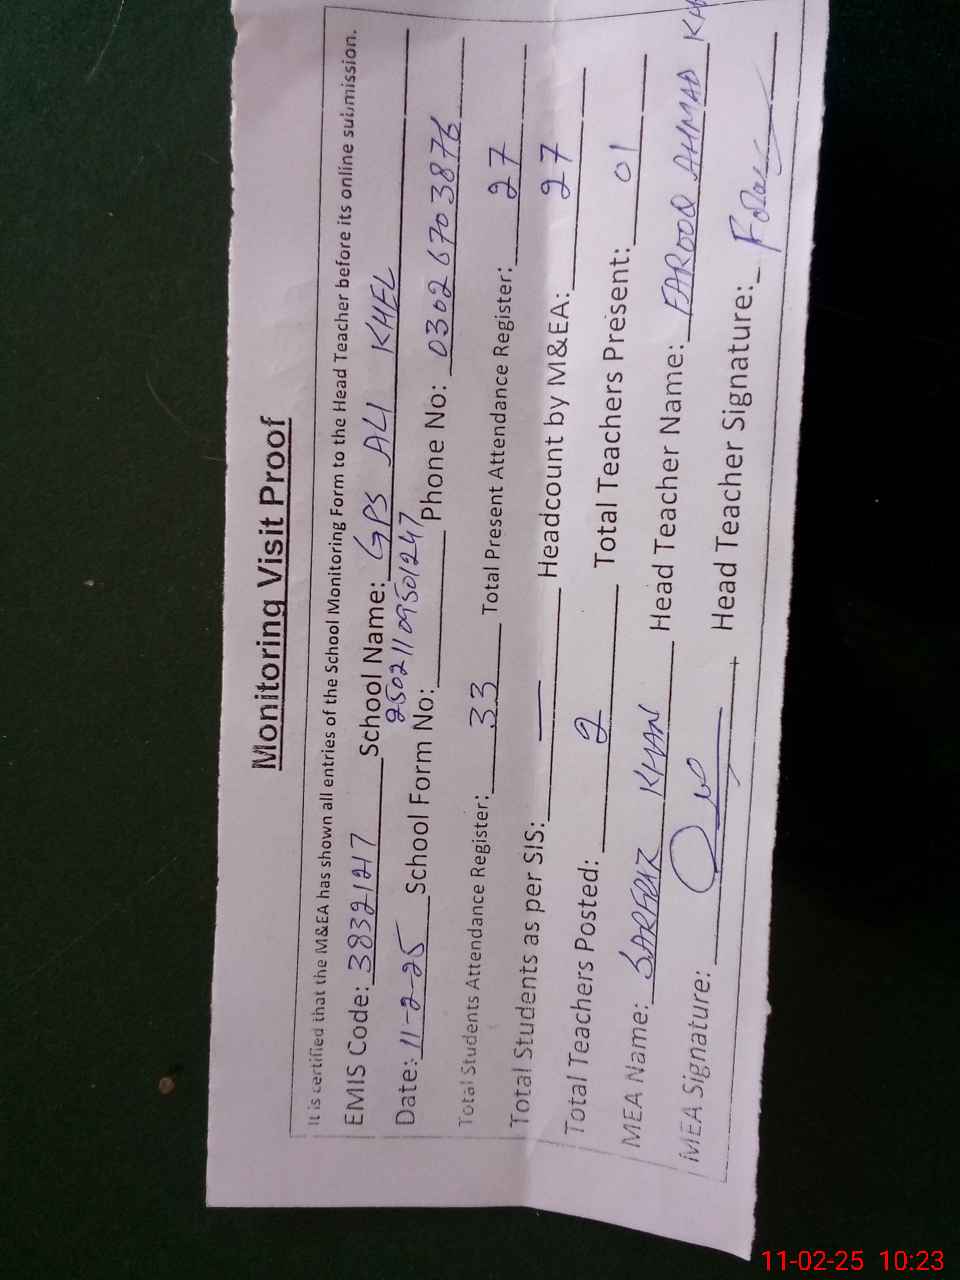 Monitoring Visit Proof
It is certified that the M&EA has shown all entries of the School Monitoring Form to the Head Teacher before its online submission.
EMIS Code: 38321217 School Name: GPS ALI KHEL
Date: 11-2-25 School Form No: 25021109501247 Phone No: 03026703876
Total Students Attendance Register: 33 Total Present Attendance Register: 27
Total Students as per SIS: — Headcount by M&EA: 27
Total Teachers Posted: 2 Total Teachers Present: 01
MEA Name: SARFRAZ KHAN Head Teacher Name: FAROOQ AHMAD
MEA Signature: Head Teacher Signature:
11-02-25 10:23